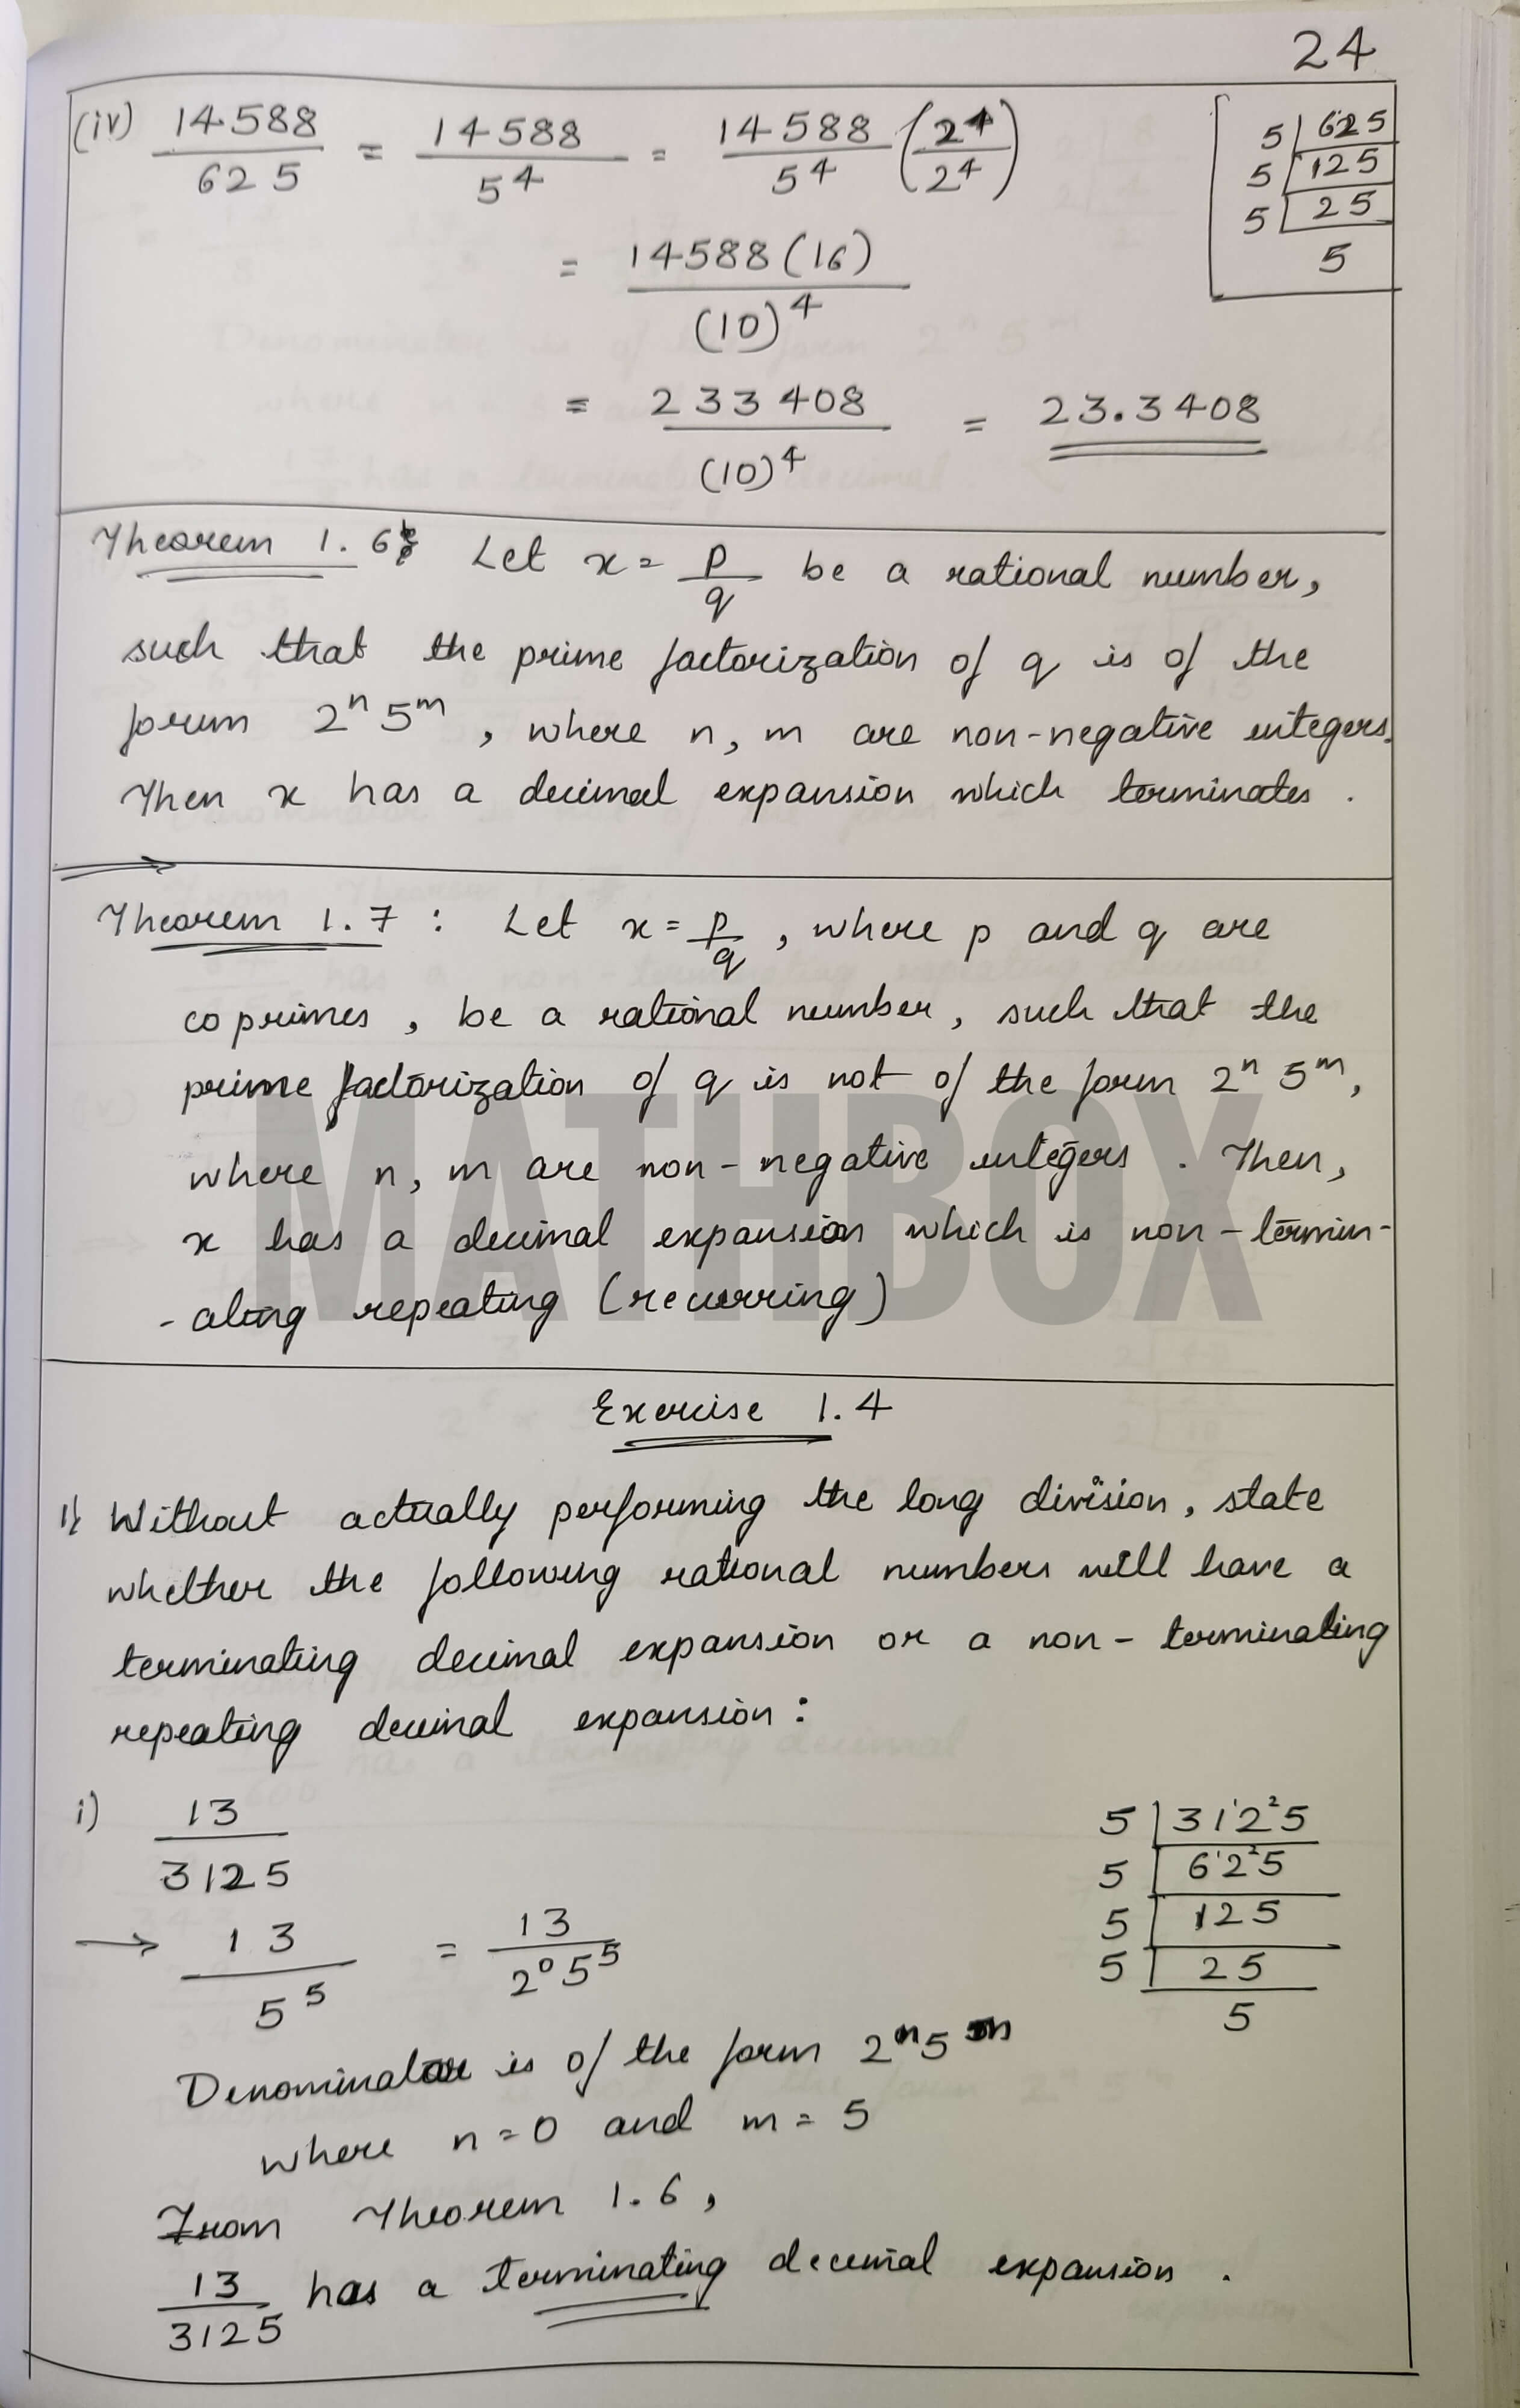 24
(iv) 14588/625 = 14588/5^4 = 14588/5^4 (2^4/2^4)
5 | 625
5 | 125
5 | 25
5
= 14588(16)/(10)^4
= 233408/(10)^4 = 23.3408
Theorem 1.6: Let x = p/q be a rational number,
such that the prime factorization of q is of the
form 2^n 5^m, where n, m are non-negative integers.
Then x has a decimal expansion which terminates.
Theorem 1.7: Let x = p/q, where p and q are
coprimes, be a rational number, such that the
prime factorization of q is not of the form 2^n 5^m,
where n, m are non-negative integers. Then,
x has a decimal expansion which is non-termin-
-ating repeating (recurring)
MATHBOX
Exercise 1.4
1) Without actually performing the long division, state
whether the following rational numbers will have a
terminating decimal expansion or a non-terminating
repeating decimal expansion:
i) 13/3125
→ 13/5^5 = 13/2^0 5^5
5 | 3125
5 | 625
5 | 125
5 | 25
5
Denominator is of the form 2^n 5^m
where n = 0 and m = 5
From Theorem 1.6,
13/3125 has a terminating decimal expansion.